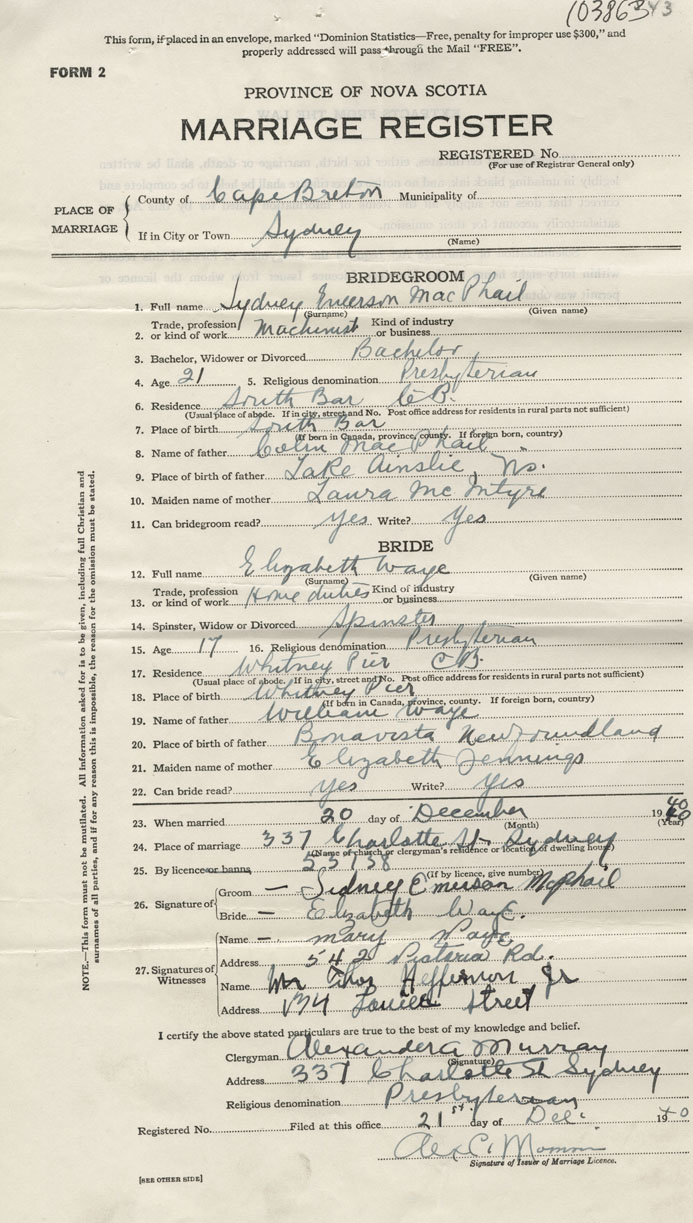 This form, if placed in an envelope, marked "Dominion Statistics—Free, penalty for improper use $300," and
properly addressed will pass through the Mail "FREE".
FORM 2
PROVINCE OF NOVA SCOTIA
MARRIAGE REGISTER
REGISTERED No.
(For use of Registrar General only)
PLACE OF MARRIAGE
County of Cape Breton Municipality of
If in City or Town Sydney
(Name)
BRIDEGROOM
1. Full name Sydney Emerson MacPhail
(Surname) (Given name)
2. Trade, profession or kind of work Machinist Kind of industry or business
3. Bachelor, Widower or Divorced Bachelor
4. Age 21 5. Religious denomination Presbyterian
6. Residence South Bar C.B.
(Usual place of abode. If in city, street and No. Post office address for residents in rural parts not sufficient)
7. Place of birth South Bar
(If born in Canada, province, county. If foreign born, country)
8. Name of father Colin MacPhail
9. Place of birth of father Lake Ainslie, N.S.
10. Maiden name of mother Laura McIntyre
11. Can bridegroom read? Yes Write? Yes
BRIDE
12. Full name Elizabeth Waye
(Surname) (Given name)
13. Trade, profession or kind of work Home duties Kind of industry or business
14. Spinster, Widow or Divorced Spinster
15. Age 17 16. Religious denomination Presbyterian
17. Residence Whitney Pier C.B.
(Usual place of abode. If in city, street and No. Post office address for residents in rural parts not sufficient)
18. Place of birth Whitney Pier
(If born in Canada, province, county. If foreign born, country)
19. Name of father William Waye
20. Place of birth of father Bonavista Newfoundland
21. Maiden name of mother Elizabeth Jennings
22. Can bride read? Yes Write? Yes
23. When married 20 day of December 1940
(Month) (Year)
24. Place of marriage 337 Charlotte St. Sydney
(Name of church or clergyman's residence or location of dwelling house)
25. By licence or banns
(If by licence, give number)
26. Signature of
Groom — Sidney Emerson McPhail
Bride — Elizabeth Waye.
27. Signatures of Witnesses
Name — Mary Waye
Address 542 Victoria Rd.
Name Mr Thos Heffernon Jr
Address Street
I certify the above stated particulars are true to the best of my knowledge and belief.
Clergyman Alexander A Murray
(Signature)
Address 337 Charlotte St Sydney
Religious denomination Presbyterian
Registered No. Filed at this office 21st day of Dec. 1940
Signature of Issuer of Marriage Licence.
[SEE OTHER SIDE]
NOTE.—This form must not be mutilated. All information asked for is to be given, including full Christian and
surnames of all parties, and if for any reason this is impossible, the reason for the omission must be stated.